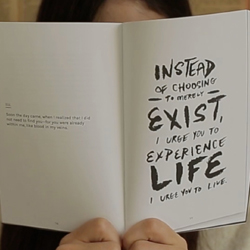 from the day we met, when I realized that I did
not need to find you, for you were already
within me, like blood in my veins.
INSTEAD
OF CHOOSING
TO MERELY
EXIST,
I URGE YOU TO
EXPERIENCE
LIFE
I URGE YOU TO LIVE